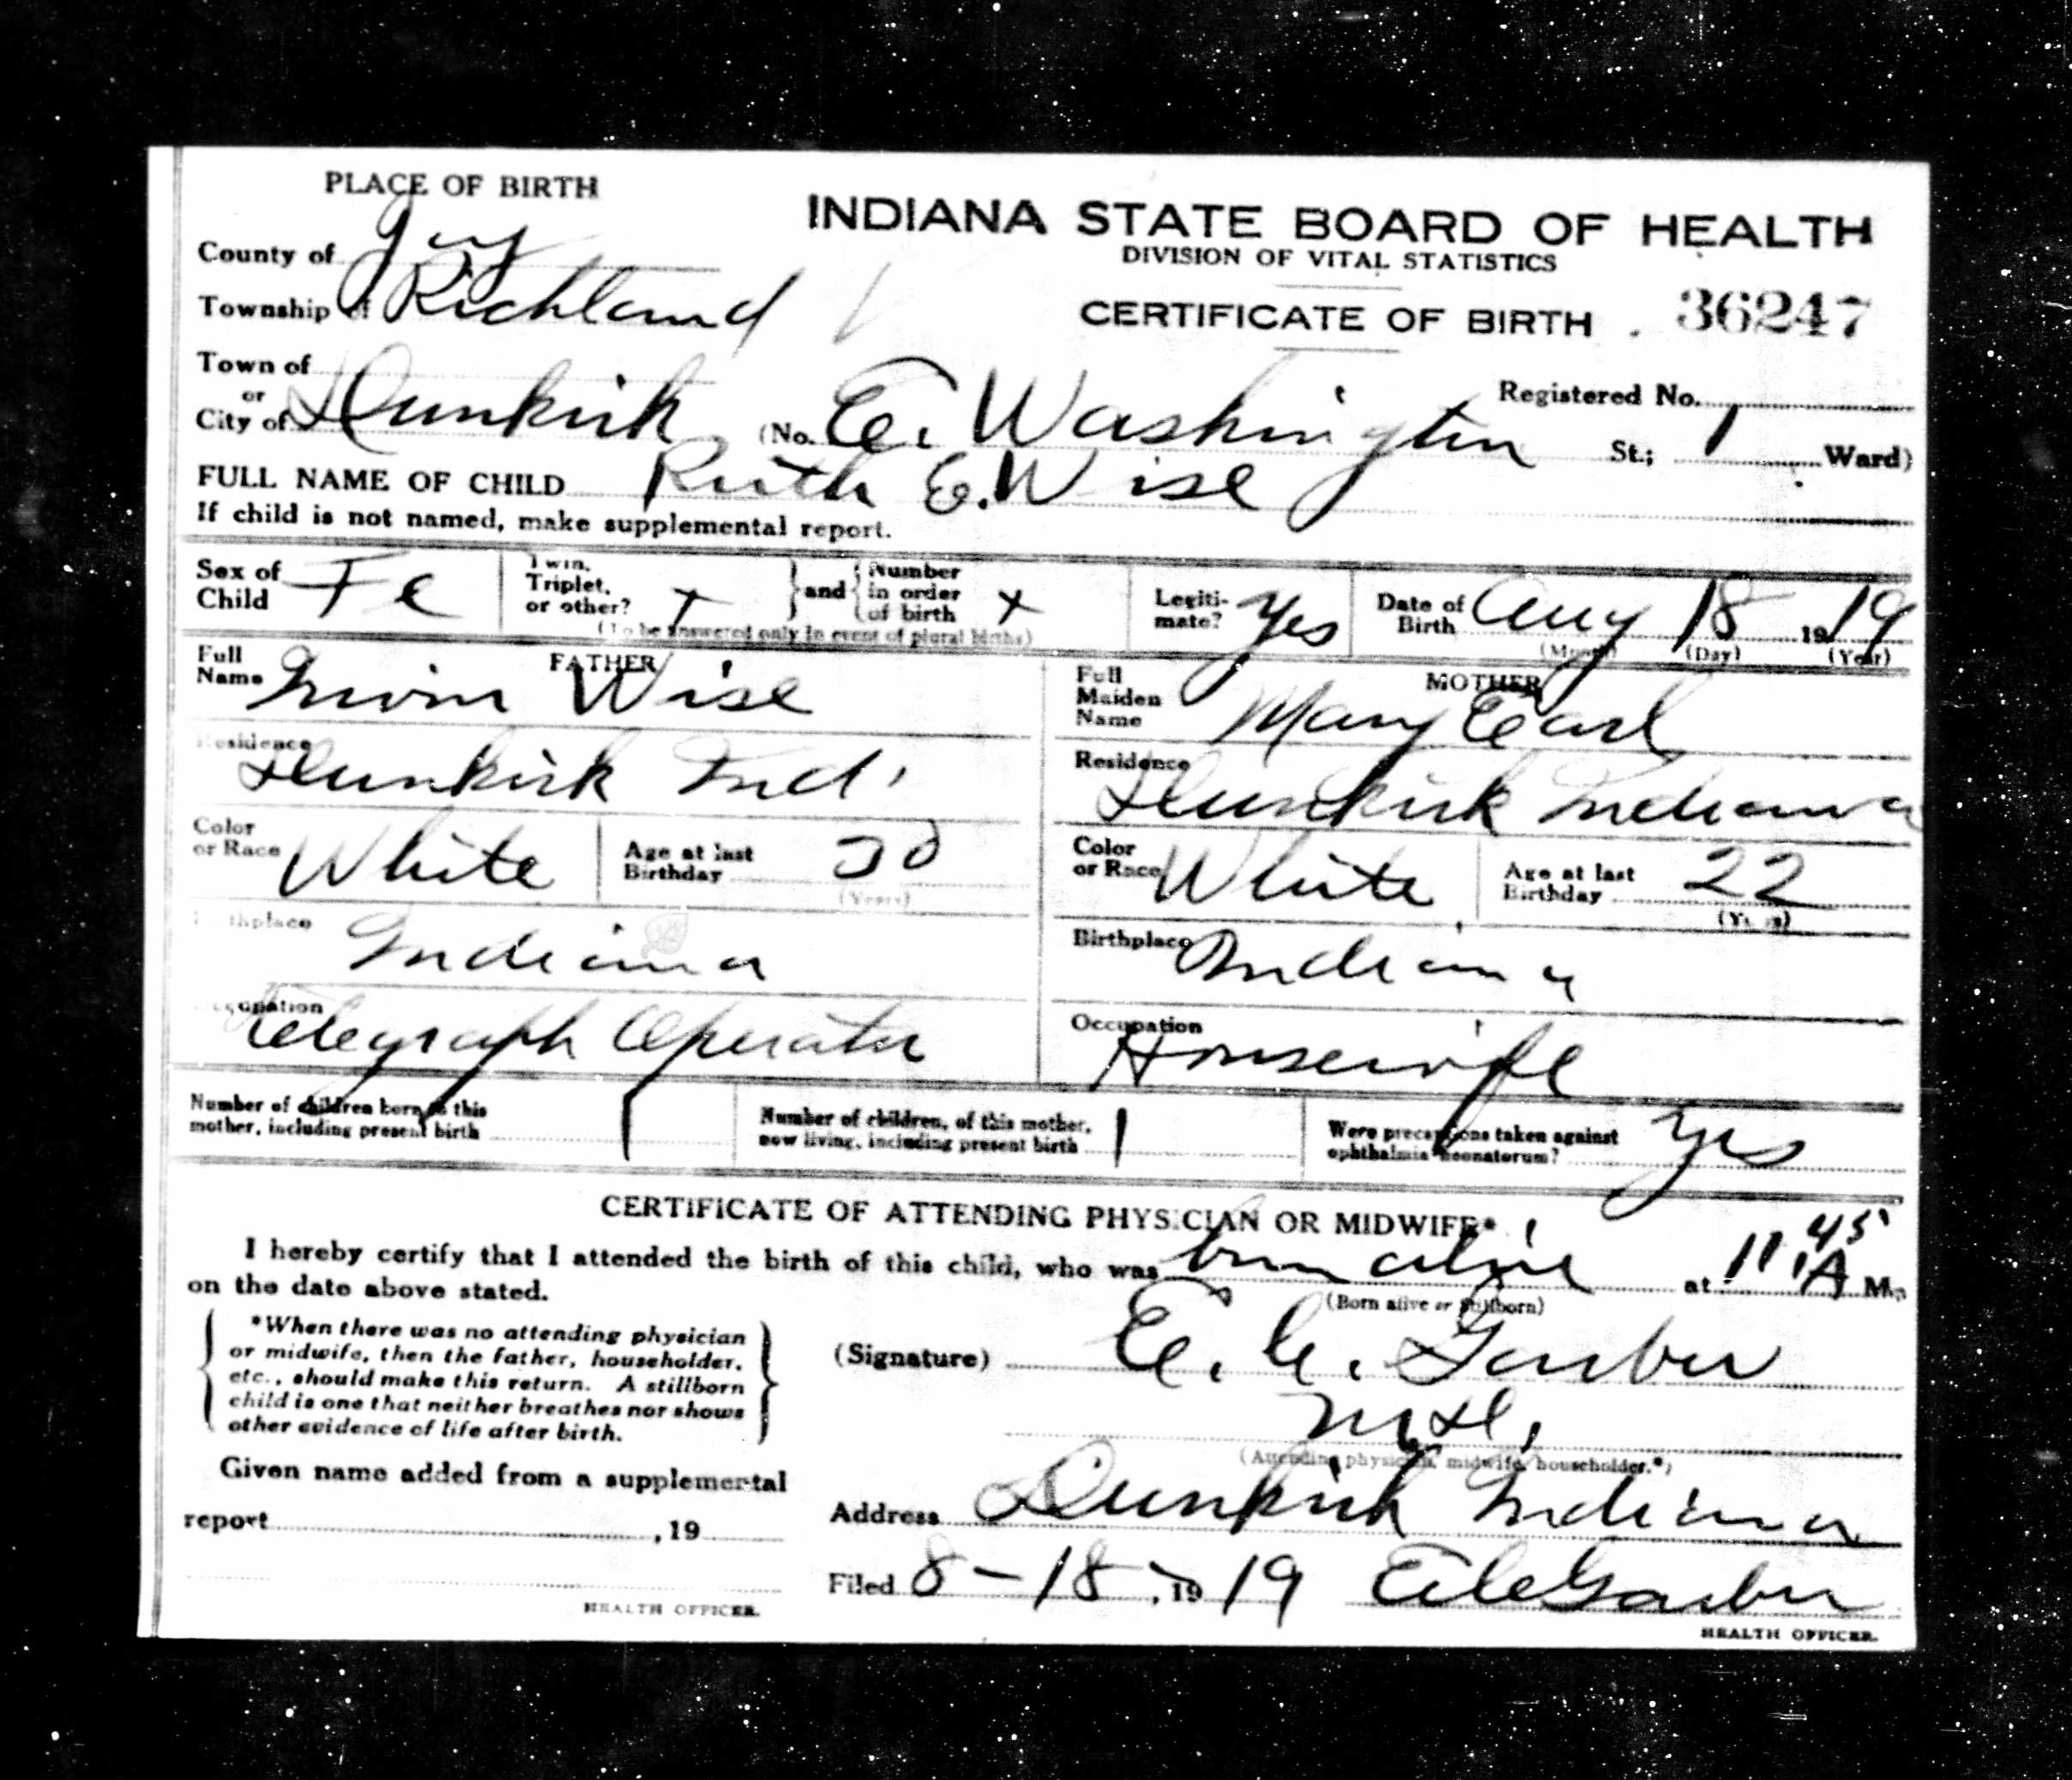 PLACE OF BIRTH
INDIANA STATE BOARD OF HEALTH
DIVISION OF VITAL STATISTICS
County of Jay
Township of Richland
CERTIFICATE OF BIRTH . 36247
Town of
or
City of Dunkirk (No. E. Washington St.; 1 Ward)
Registered No.
FULL NAME OF CHILD Ruth E. Wise
If child is not named, make supplemental report.
Sex of Child Fe
Twin, Triplet, or other? x } and { Number in order of birth x
(To be answered only in event of plural births)
Legitimate? Yes
Date of Birth Aug 18 1919
(Month) (Day) (Year)
FATHER
Full Name Irvin Wise
MOTHER
Full Maiden Name Mary Earl
Residence Dunkirk Ind.
Residence Dunkirk Indiana
Color or Race White
Age at last Birthday
(Years)
Color or Race White
Age at last Birthday 22
(Years)
Birthplace Indiana
Birthplace Indiana
Occupation Telegraph Operator
Occupation Housewife
Number of children born to this mother, including present birth 1
Number of children, of this mother, now living, including present birth 1
Were precautions taken against ophthalmia neonatorum? Yes
CERTIFICATE OF ATTENDING PHYSICIAN OR MIDWIFE*
I hereby certify that I attended the birth of this child, who was born alive at 11 45 A M.,
(Born alive or stillborn)
on the date above stated.
*When there was no attending physician
or midwife, then the father, householder,
etc., should make this return. A stillborn
child is one that neither breathes nor shows
other evidence of life after birth.
(Signature) E. C. Garber
M.D.
(Attending physician, midwife, householder.*)
Given name added from a supplemental
report , 19
HEALTH OFFICER.
Address Dunkirk Indiana
Filed 8-18, 1919 E C Garber
HEALTH OFFICER.